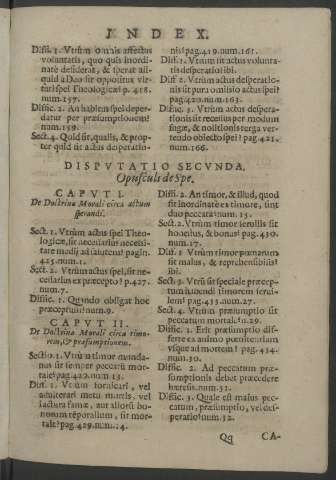 INDEX.
Diffi. 1. Vtrùm omnis affectus
voluntatis, quo quis inordi-
natè desiderat, & sperat ali-
quid à Deo sit oppositus vir-
tuti spei Theologicæ? p. 418.
num. 157.
Diffic. 2. An habens spei deper-
datur per præsumptionem?
num. 159.
Sect. 4. Quid sit, qualis, & prop-
ter quid sit actus desperatio-
nis? pag. 419. num. 161.
Diff. 1. Vtrùm sit actus volunta-
tis desperatio? ibi.
Diff. 2. Vtrùm actus desperatio-
nis sit pura omissio actus spei?
pag. 420. num. 163.
Diffic. 3. Vtrùm actus desperatio-
nis sit recessus per modum
fugæ, & nolitionis terga ver-
tendo obiecto spei? pag. 421.
num. 166.
DISPVTATIO SECVNDA,
Opusculi de Spe.
CAPVT I.
De Doctrina Morali circa actum
sperandi.
Sect. 1. Vtrùm actus spei Theo-
logicæ, sit necessarius necessi-
tate medij ad salutem? pagin.
425. num. 1.
Sect. 2. Vtrùm actus spei, sit ne-
cessarius ex præcepto? p. 427.
num. 7.
Diffic. 1. Quando obligat hoc
præceptum? num. 9.
CAPVT II.
De Doctrina Morali circa timo-
rem, & præsumptionem.
Sectio. 1. Vtrùm timor munda-
nus sit semper peccatū mor-
tale? pag. 429. num. 13.
Diff. 1. Vtrùm fornicari, vel
adulterari metu mortis, vel
iactura famæ, aut aliorū bo-
norum temporalium, sit mor-
tale? pag. 429. num. 14.
Diff. 2. An timor, & illud, quod
fit inordinatè ex timore, sint
duo peccata? num. 15.
Sect. 2. Vtrùm timor seruilis sit
honestus, & bonus? pag. 430.
num. 17.
Diff. 1. Vtrùm timor pœnarum
sit malus, & reprehensibilis?
ibi.
Sect. 3. Vtrùm sit speciale præcep-
tum habendi timorem serui-
lem? pag. 433. num. 27.
Sect. 4. Vtrùm præsumptio sit
peccatum mortale? n. 29.
Diffic. 1. Erit præsumptio dif-
ferre ex animo pœnitentiam
vsque ad mortem? pag. 434.
num. 30.
Diffic. 2. Ad peccatum præ-
sumptionis debet præcedere
hæresis? num. 31.
Diffic. 3. Quale est maius pec-
catum, præsumptio, vel des-
peratio? num. 32.
Qq CA-